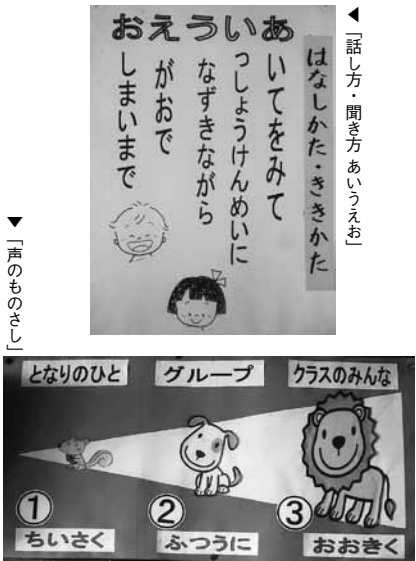 ◀「話し方・聞き方 あいうえお」
はなしかた・ききかた
あいてをみて
いっしょうけんめいに
うなずきながら
えがおで
おしまいまで
▼「声のものさし」
となりのひと
グループ
クラスのみんな
①
②
③
ちいさく
ふつうに
おおきく